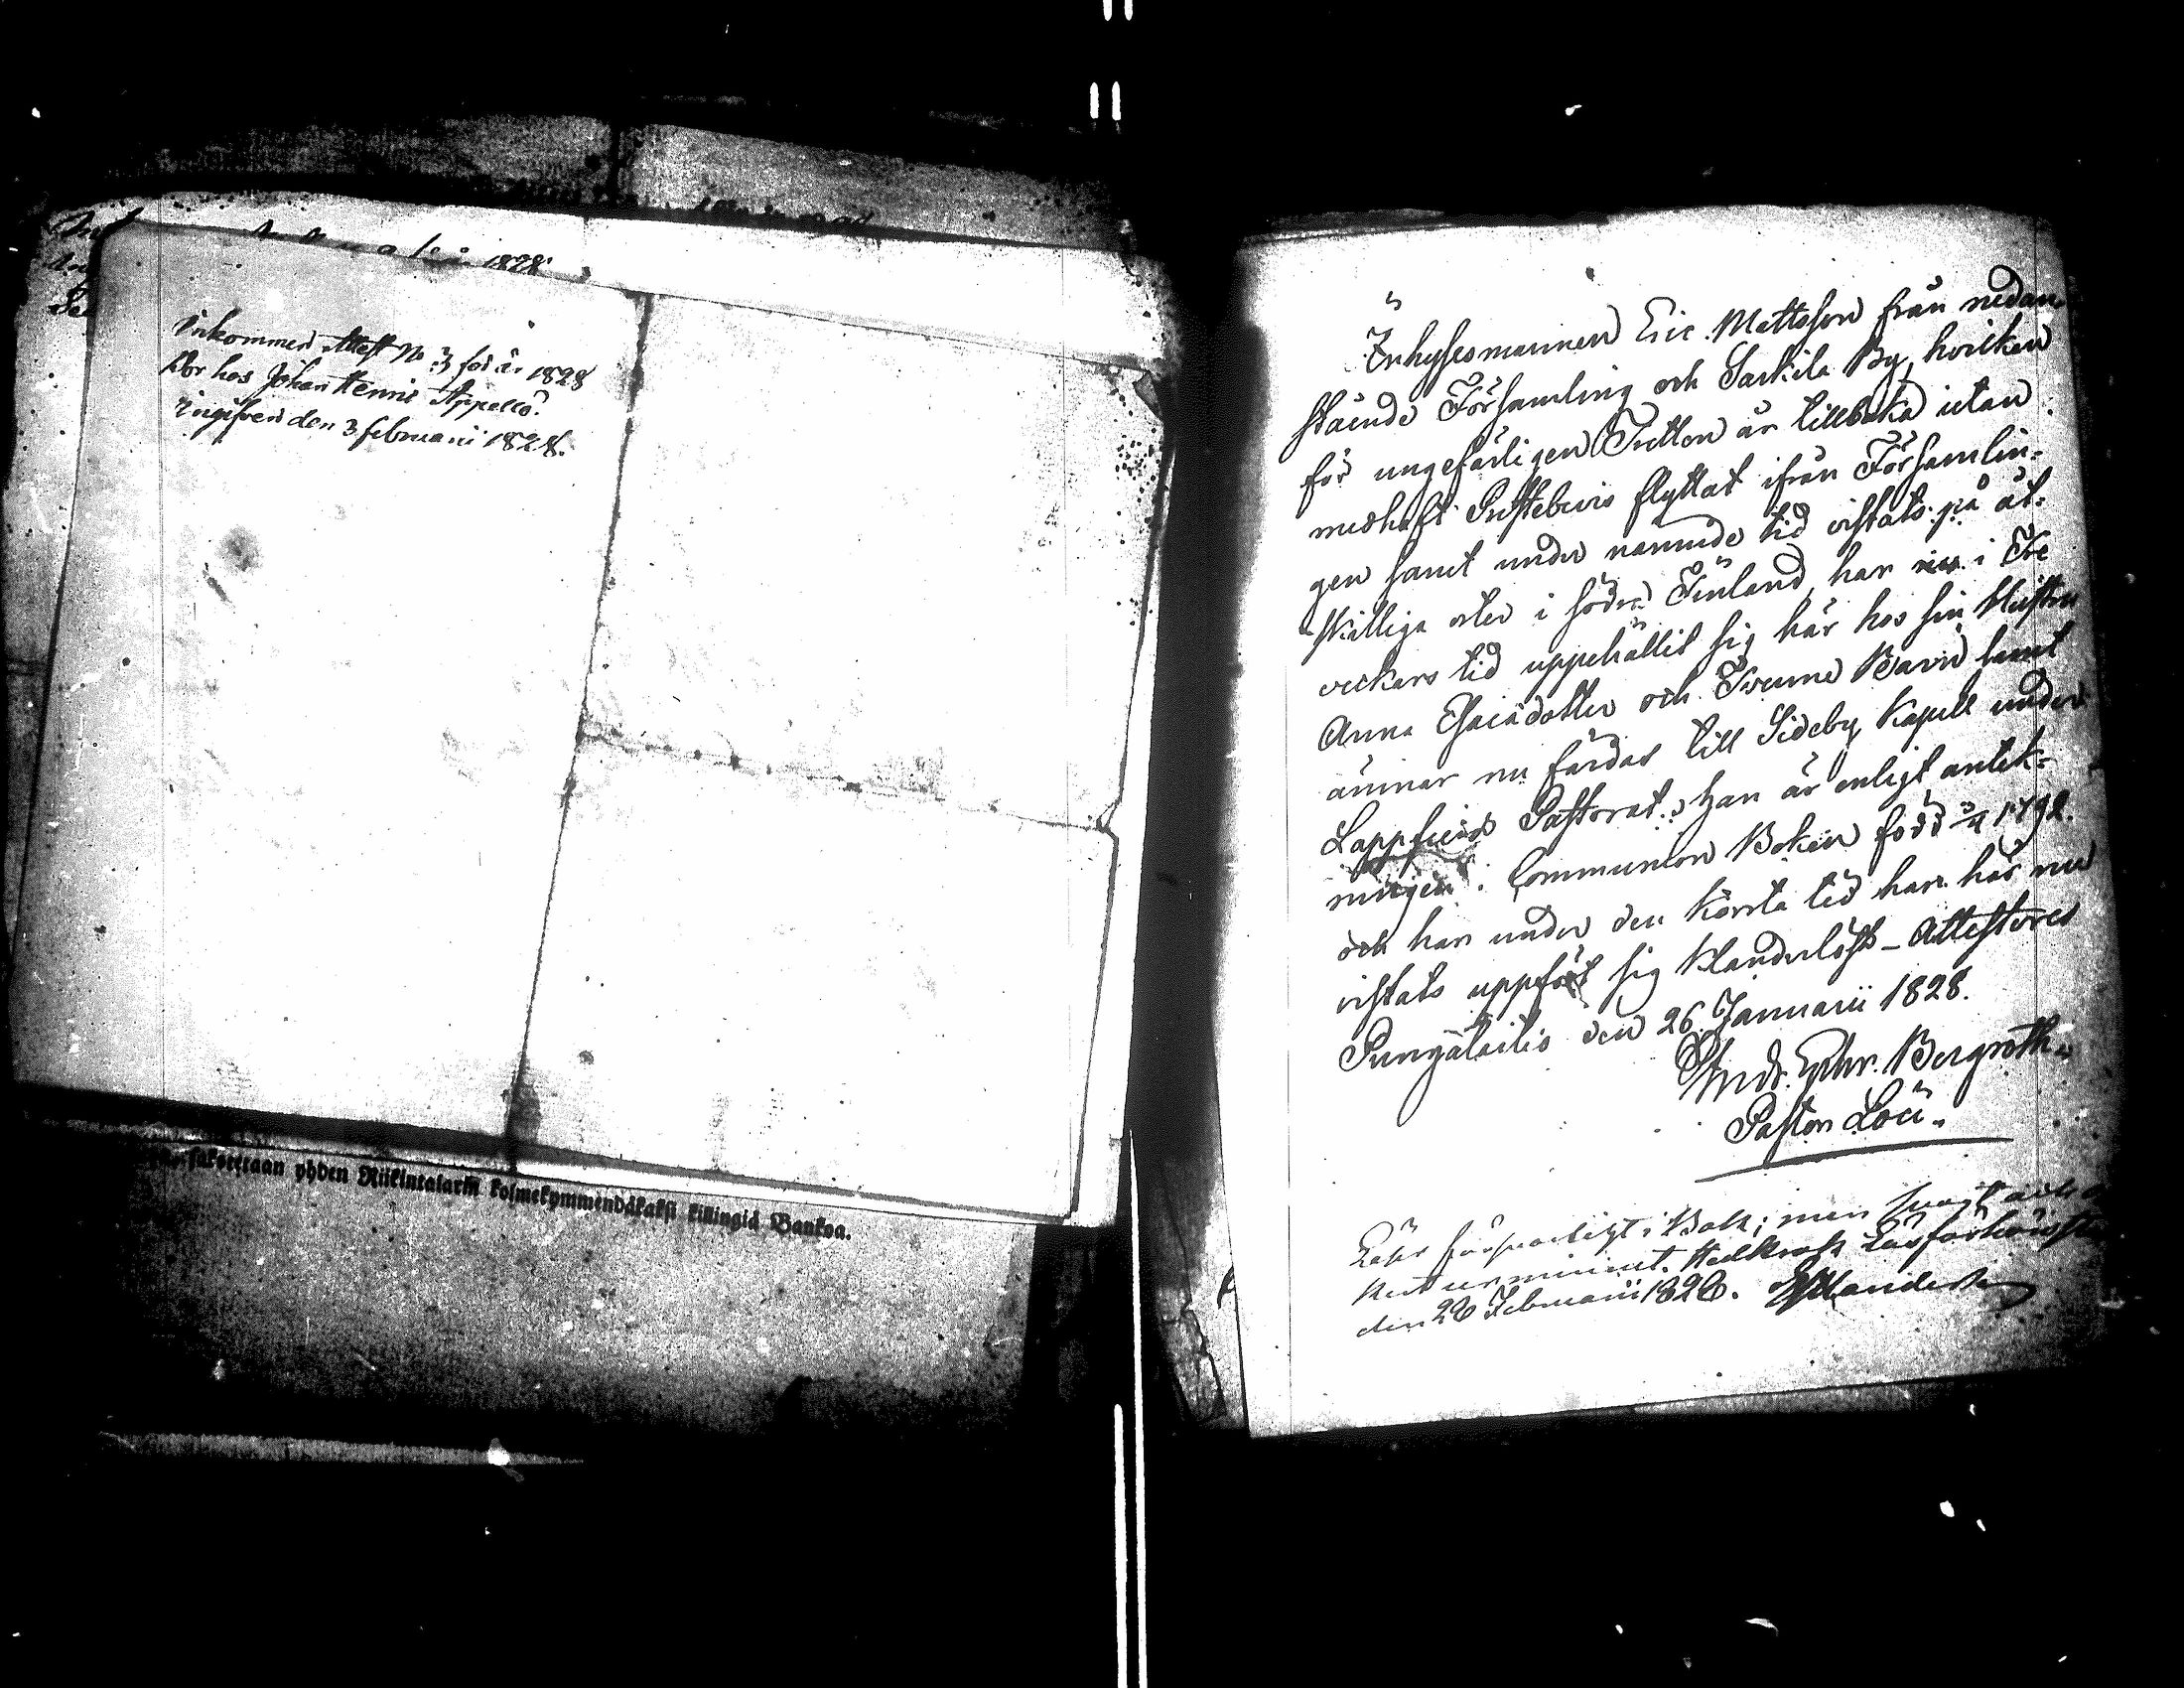 1828
Inkommen Attest No 3 för år 1828
Bor hos Johan Hennis Appello.
Ingifven den 3 februarii 1828.
yhden Riikintalarin kolmekymmendäkaksi killingiä Bankoa.
Inhysesmannen Eric Mattsson från nedan
stående Församling och Sarkila By, hvilken
för ungefärligen Tretton år tillbaka utan
medhaft Prestebevis flyttat ifrån Församlin-
gen samt under namnde tid vistats på åt-
skilliga orter i södra Finland, har nu i Tre
veckars tid uppehållit sig här hos sin Hustru
Anna Esaiædotter och Trenne Barn samt
ämnar nu färdas till Sideby Kapell under
Lappfierd Pastorat. Han är enligt antek-
ningen i Communion Boken född 1792.
och har under den korrta tid han här nu
vistats uppfört sig Klanderlöst - Attesteras
Pungalaitio den 26 Januarii 1828.
Ephr. Bergroth.
Pastor Loci.
Läser försvarligt i Bok; men svagt och
utur minnet. Läsförhör
den 26 Februarii 1828.